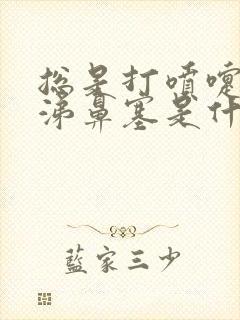 总是打喷嚏
涕鼻塞是什
藍家三少